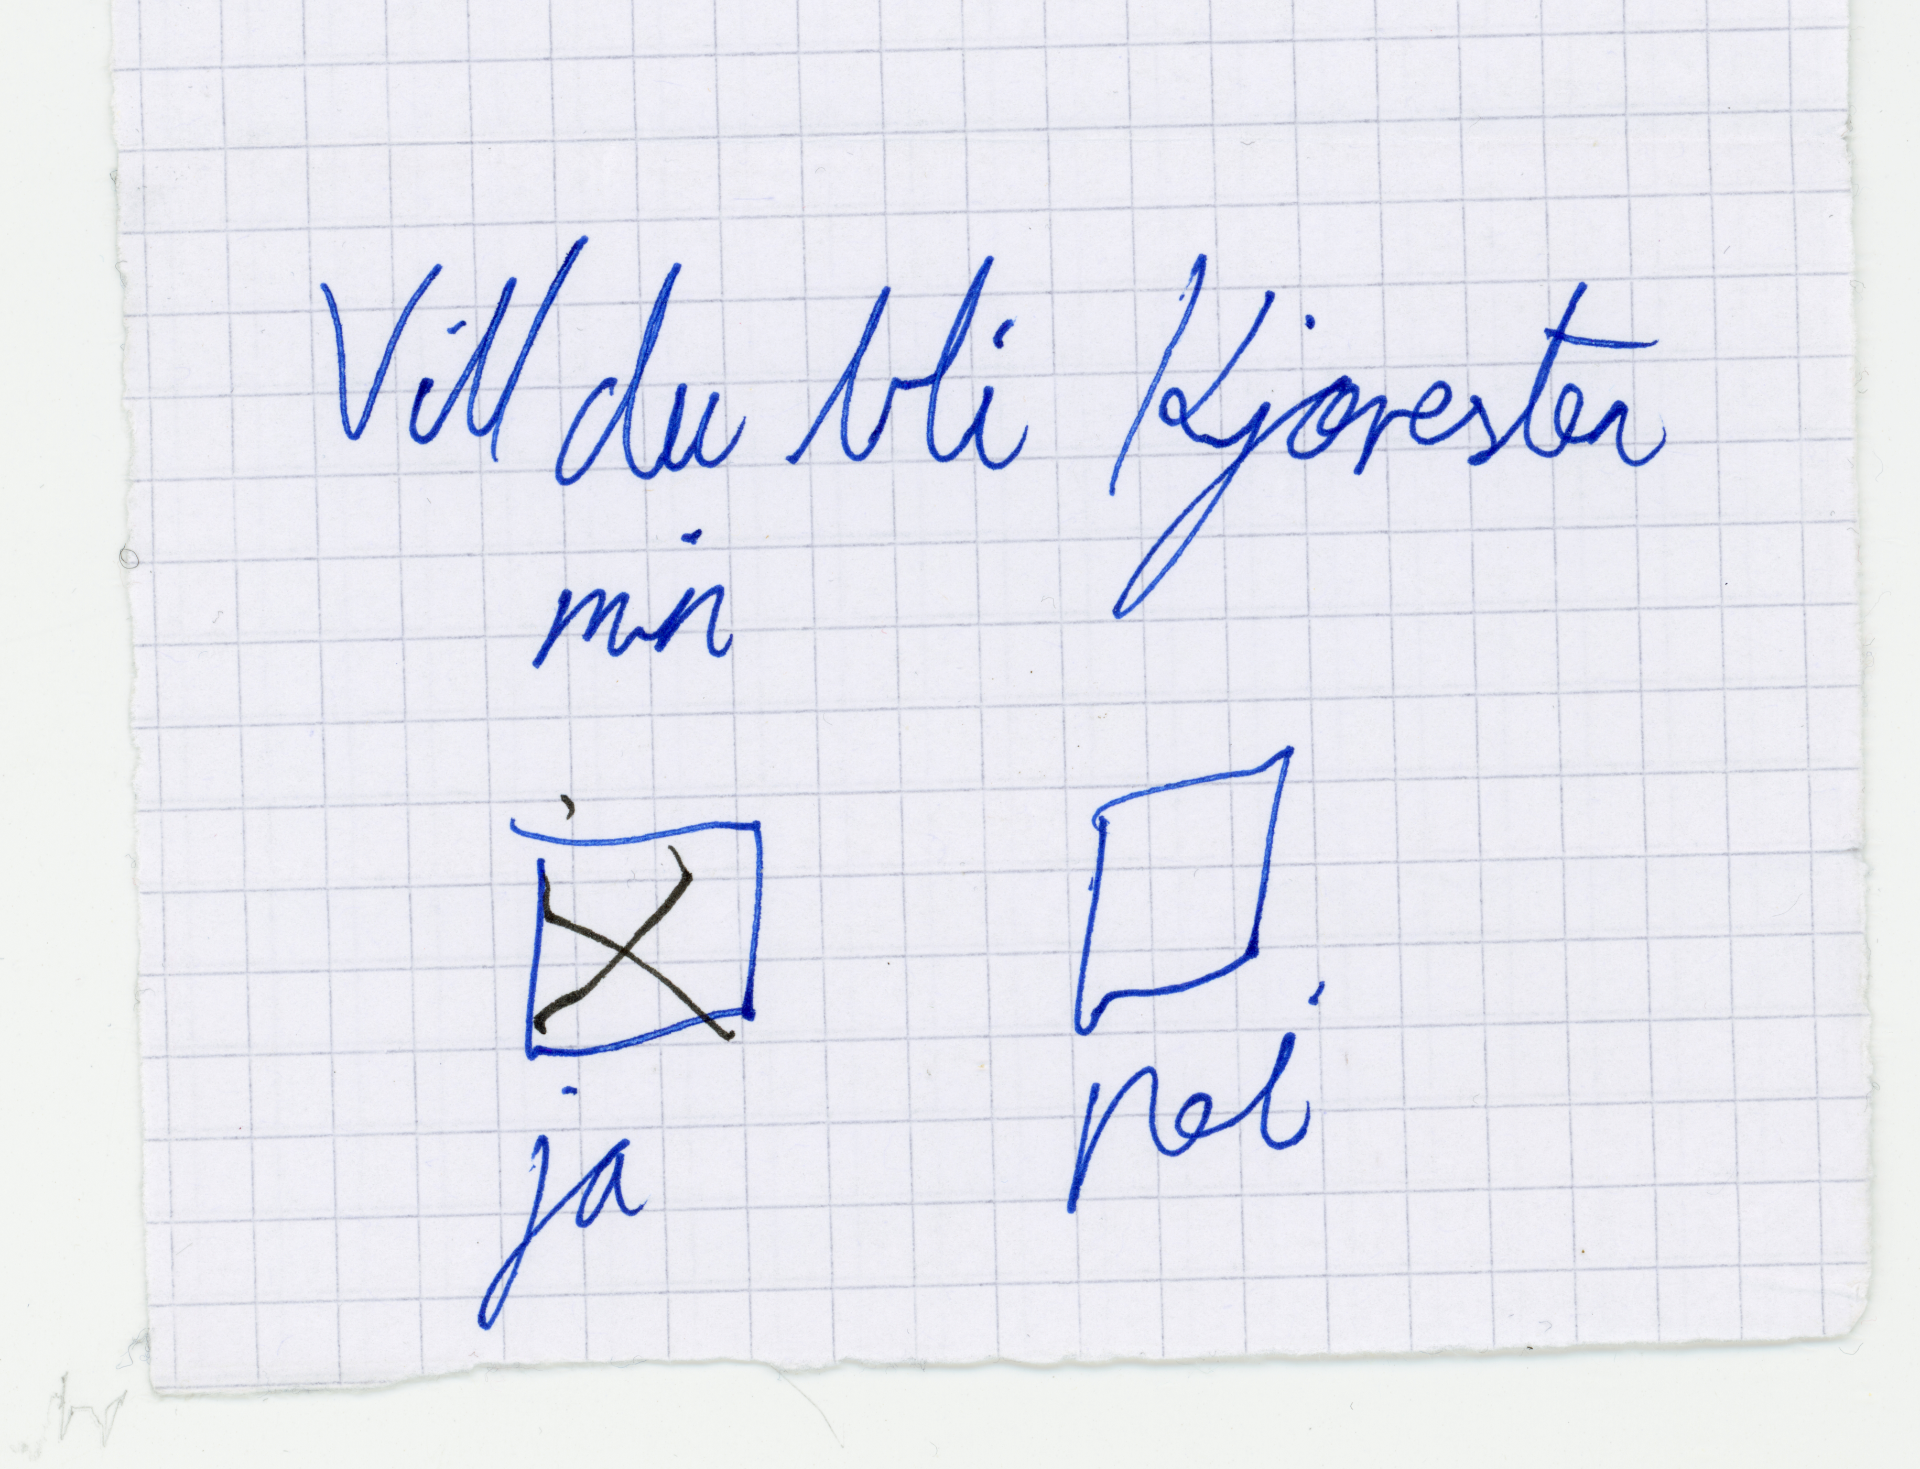 Vill du bli Kjøresten
min
ja nei